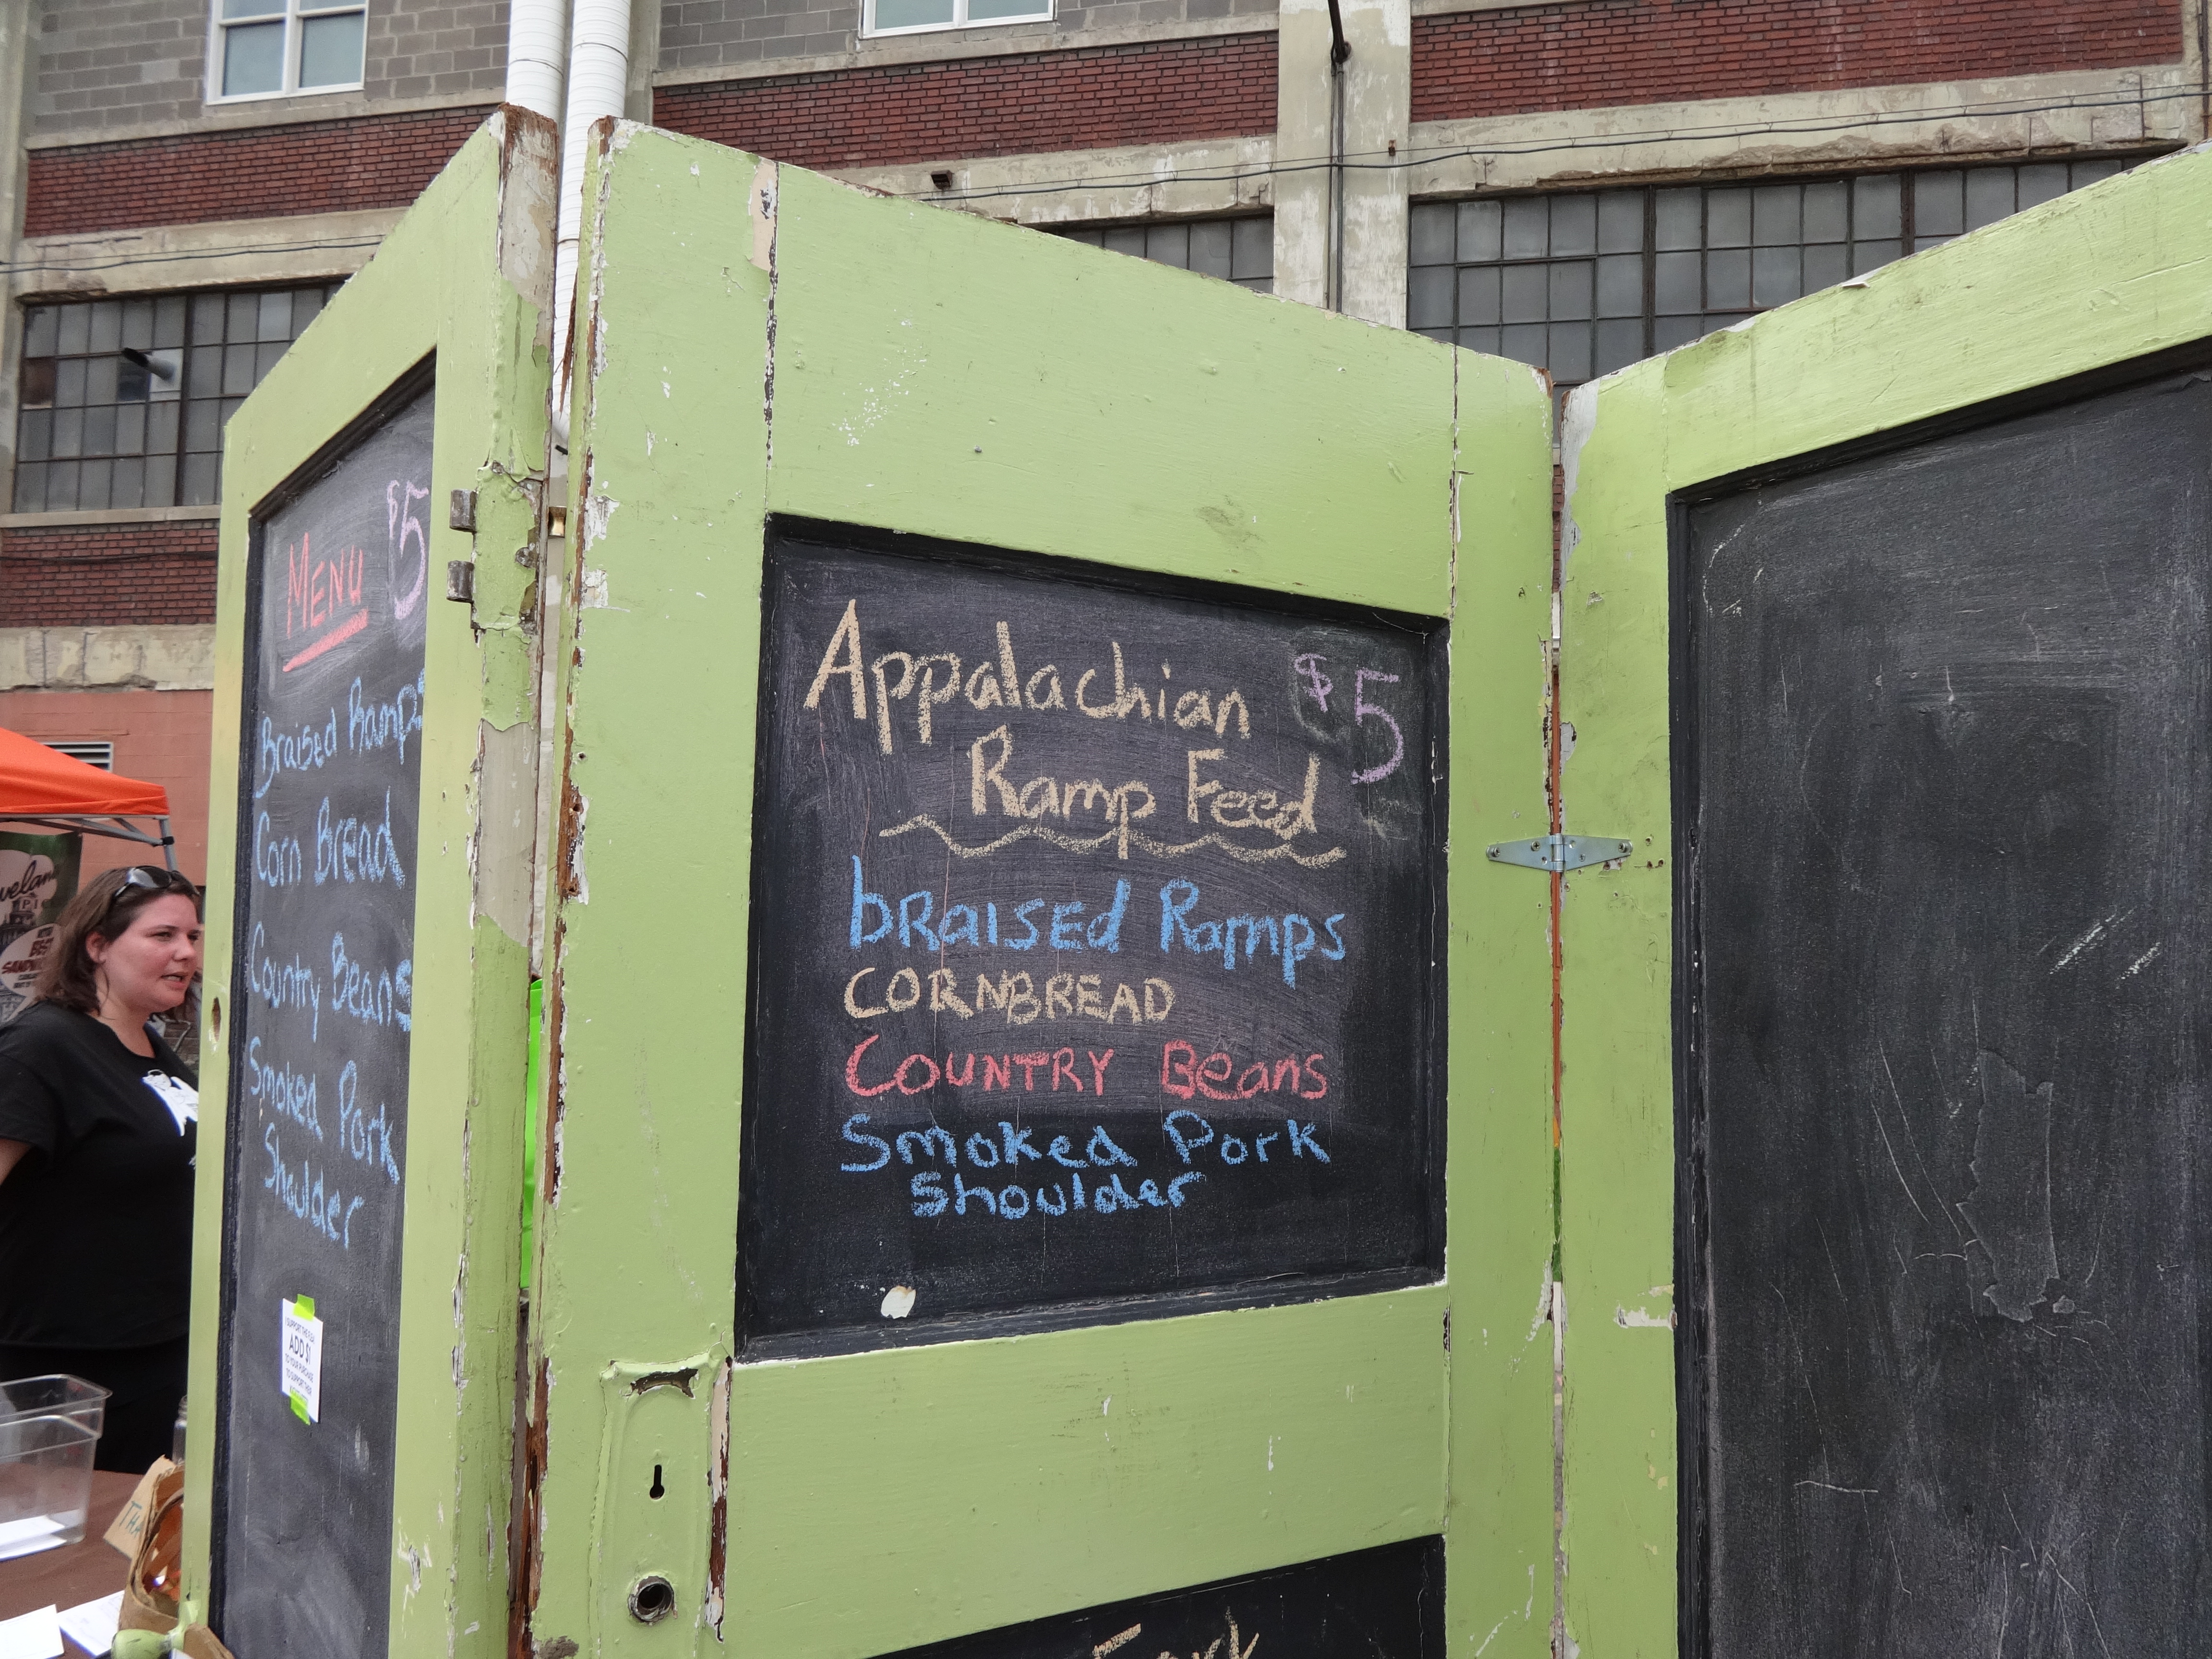 MENU $5
Braised Ramps
Corn Bread
Country Beans
Smoked Pork
Shoulder
ADD $1
TO YOUR PURCHASE
Appalachian $5
Ramp Feed
bRAISEd Ramps
CORNBREAD
COUNTRY Beans
Smoked Pork
Shoulder